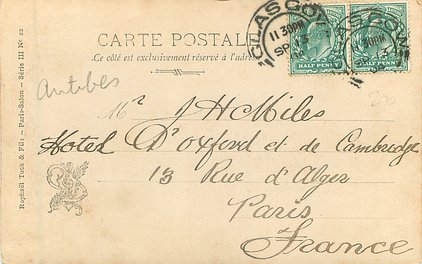 CARTE POSTALE
Ce côté est exclusivement réservé à l'adresse
GLASGOW
11 30PM
SP
HALF PENNY
HALF PENNY
Antibes
Mr J H Miles
Hotel D'oxford et de Cambridge
13 Rue d'Alger
Paris
France
Raphaël Tuck & Fils - Paris-Salon - Série III No 22